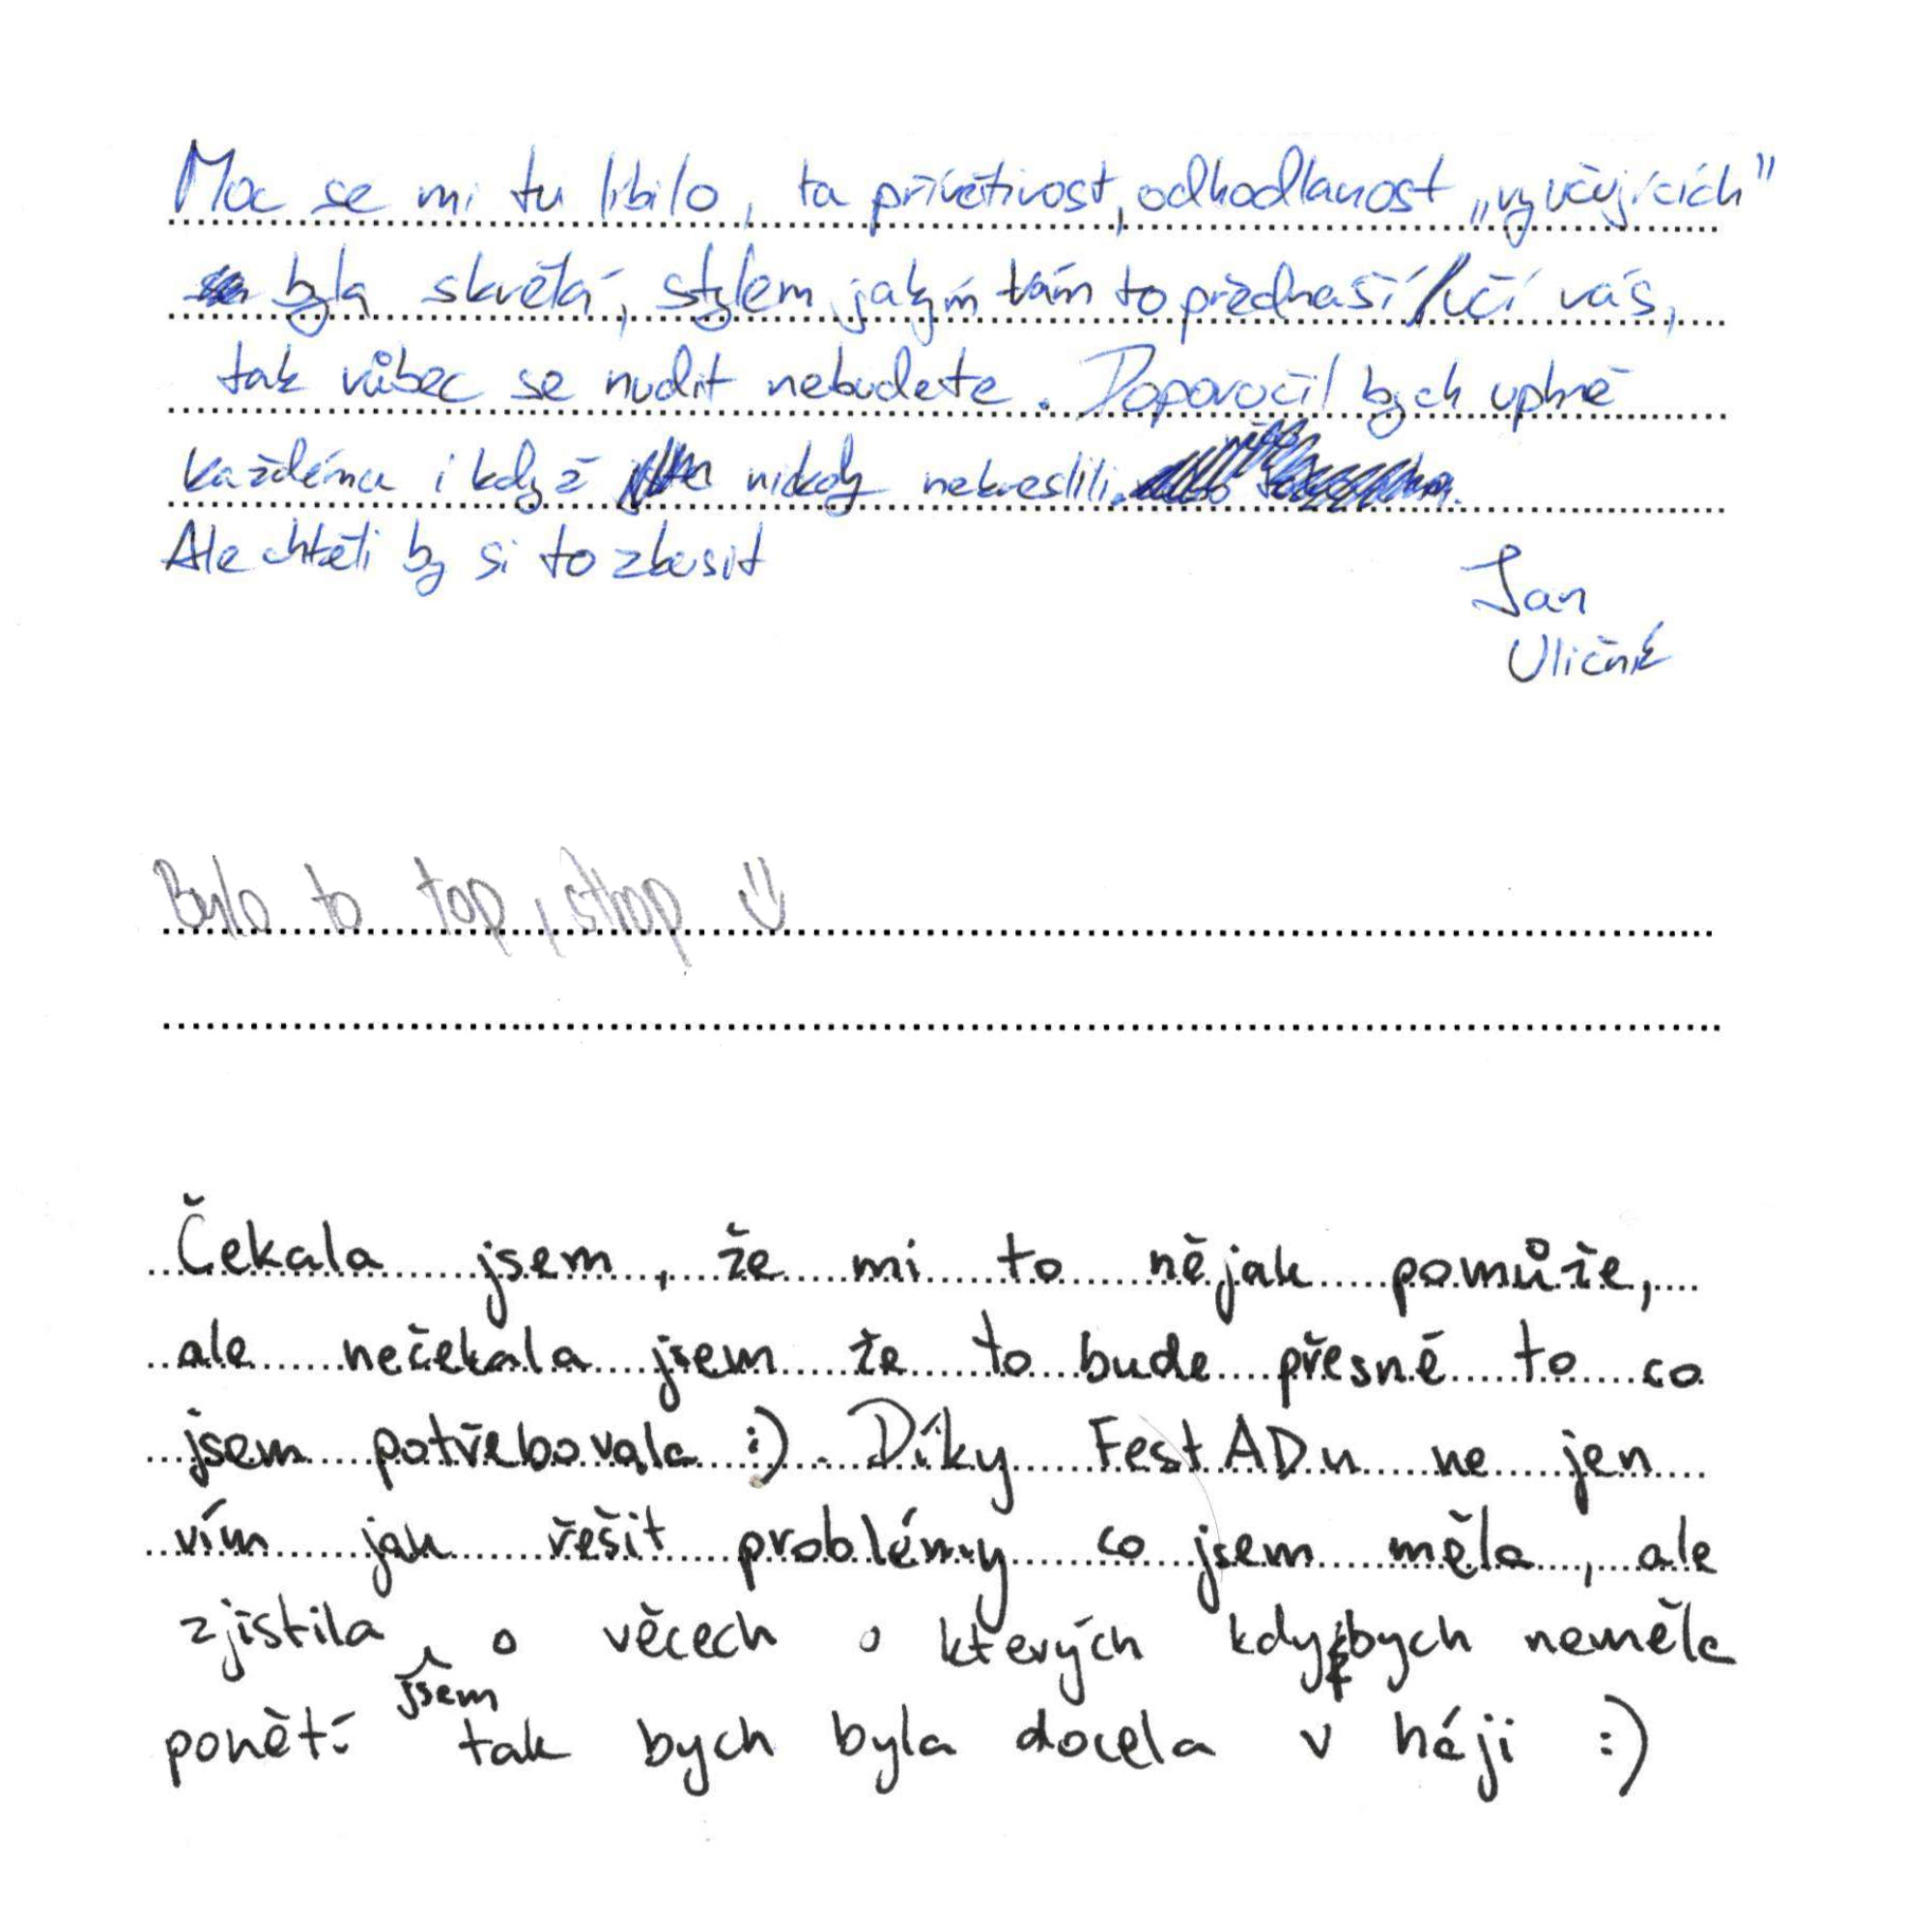 Moc se mi tu líbilo, ta přívětivost, odhodlanost „vyučujících"
byla skvělá, stylem jakým vám to přednáší/učí vás,
tak vůbec se nudit nebudete. Doporočil bych uplně
každému i když nikdy nekreslili.
Ale chtěli by si to zkusit
Jan
Uličný
Bylo to top, sthop
Čekala jsem, že mi to nějak pomůže,
ale nečekala jsem že to bude přesně to co
jsem potřebovala :). Díky FestADu ne jen
vím jak řešit problémy co jsem měla, ale
zjistila jsem o věcech o kterých kdybych neměla
ponětí tak bych byla docela v háji :)